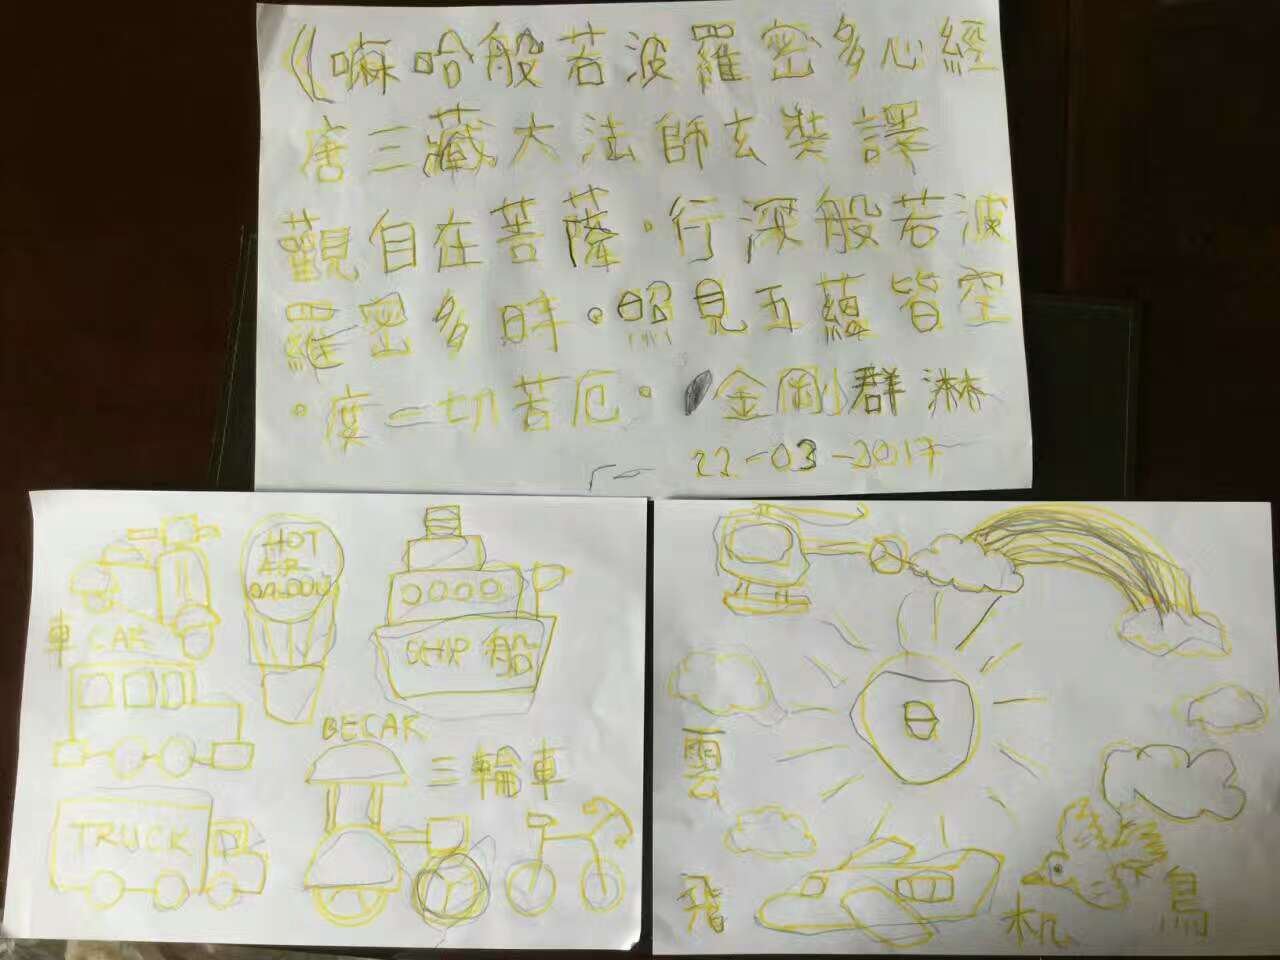 《嘛哈般若波羅密多心經
唐三藏大法師玄奘譯
觀自在菩薩·行深般若波
羅密多時。照見五蘊皆空
·度一切苦厄·金剛小群淋
22-03-2017
HOT
AIR
車 CAR
SHIP 船
BECAK
三輪車
TRUCK
日
雲
飛机
鳥